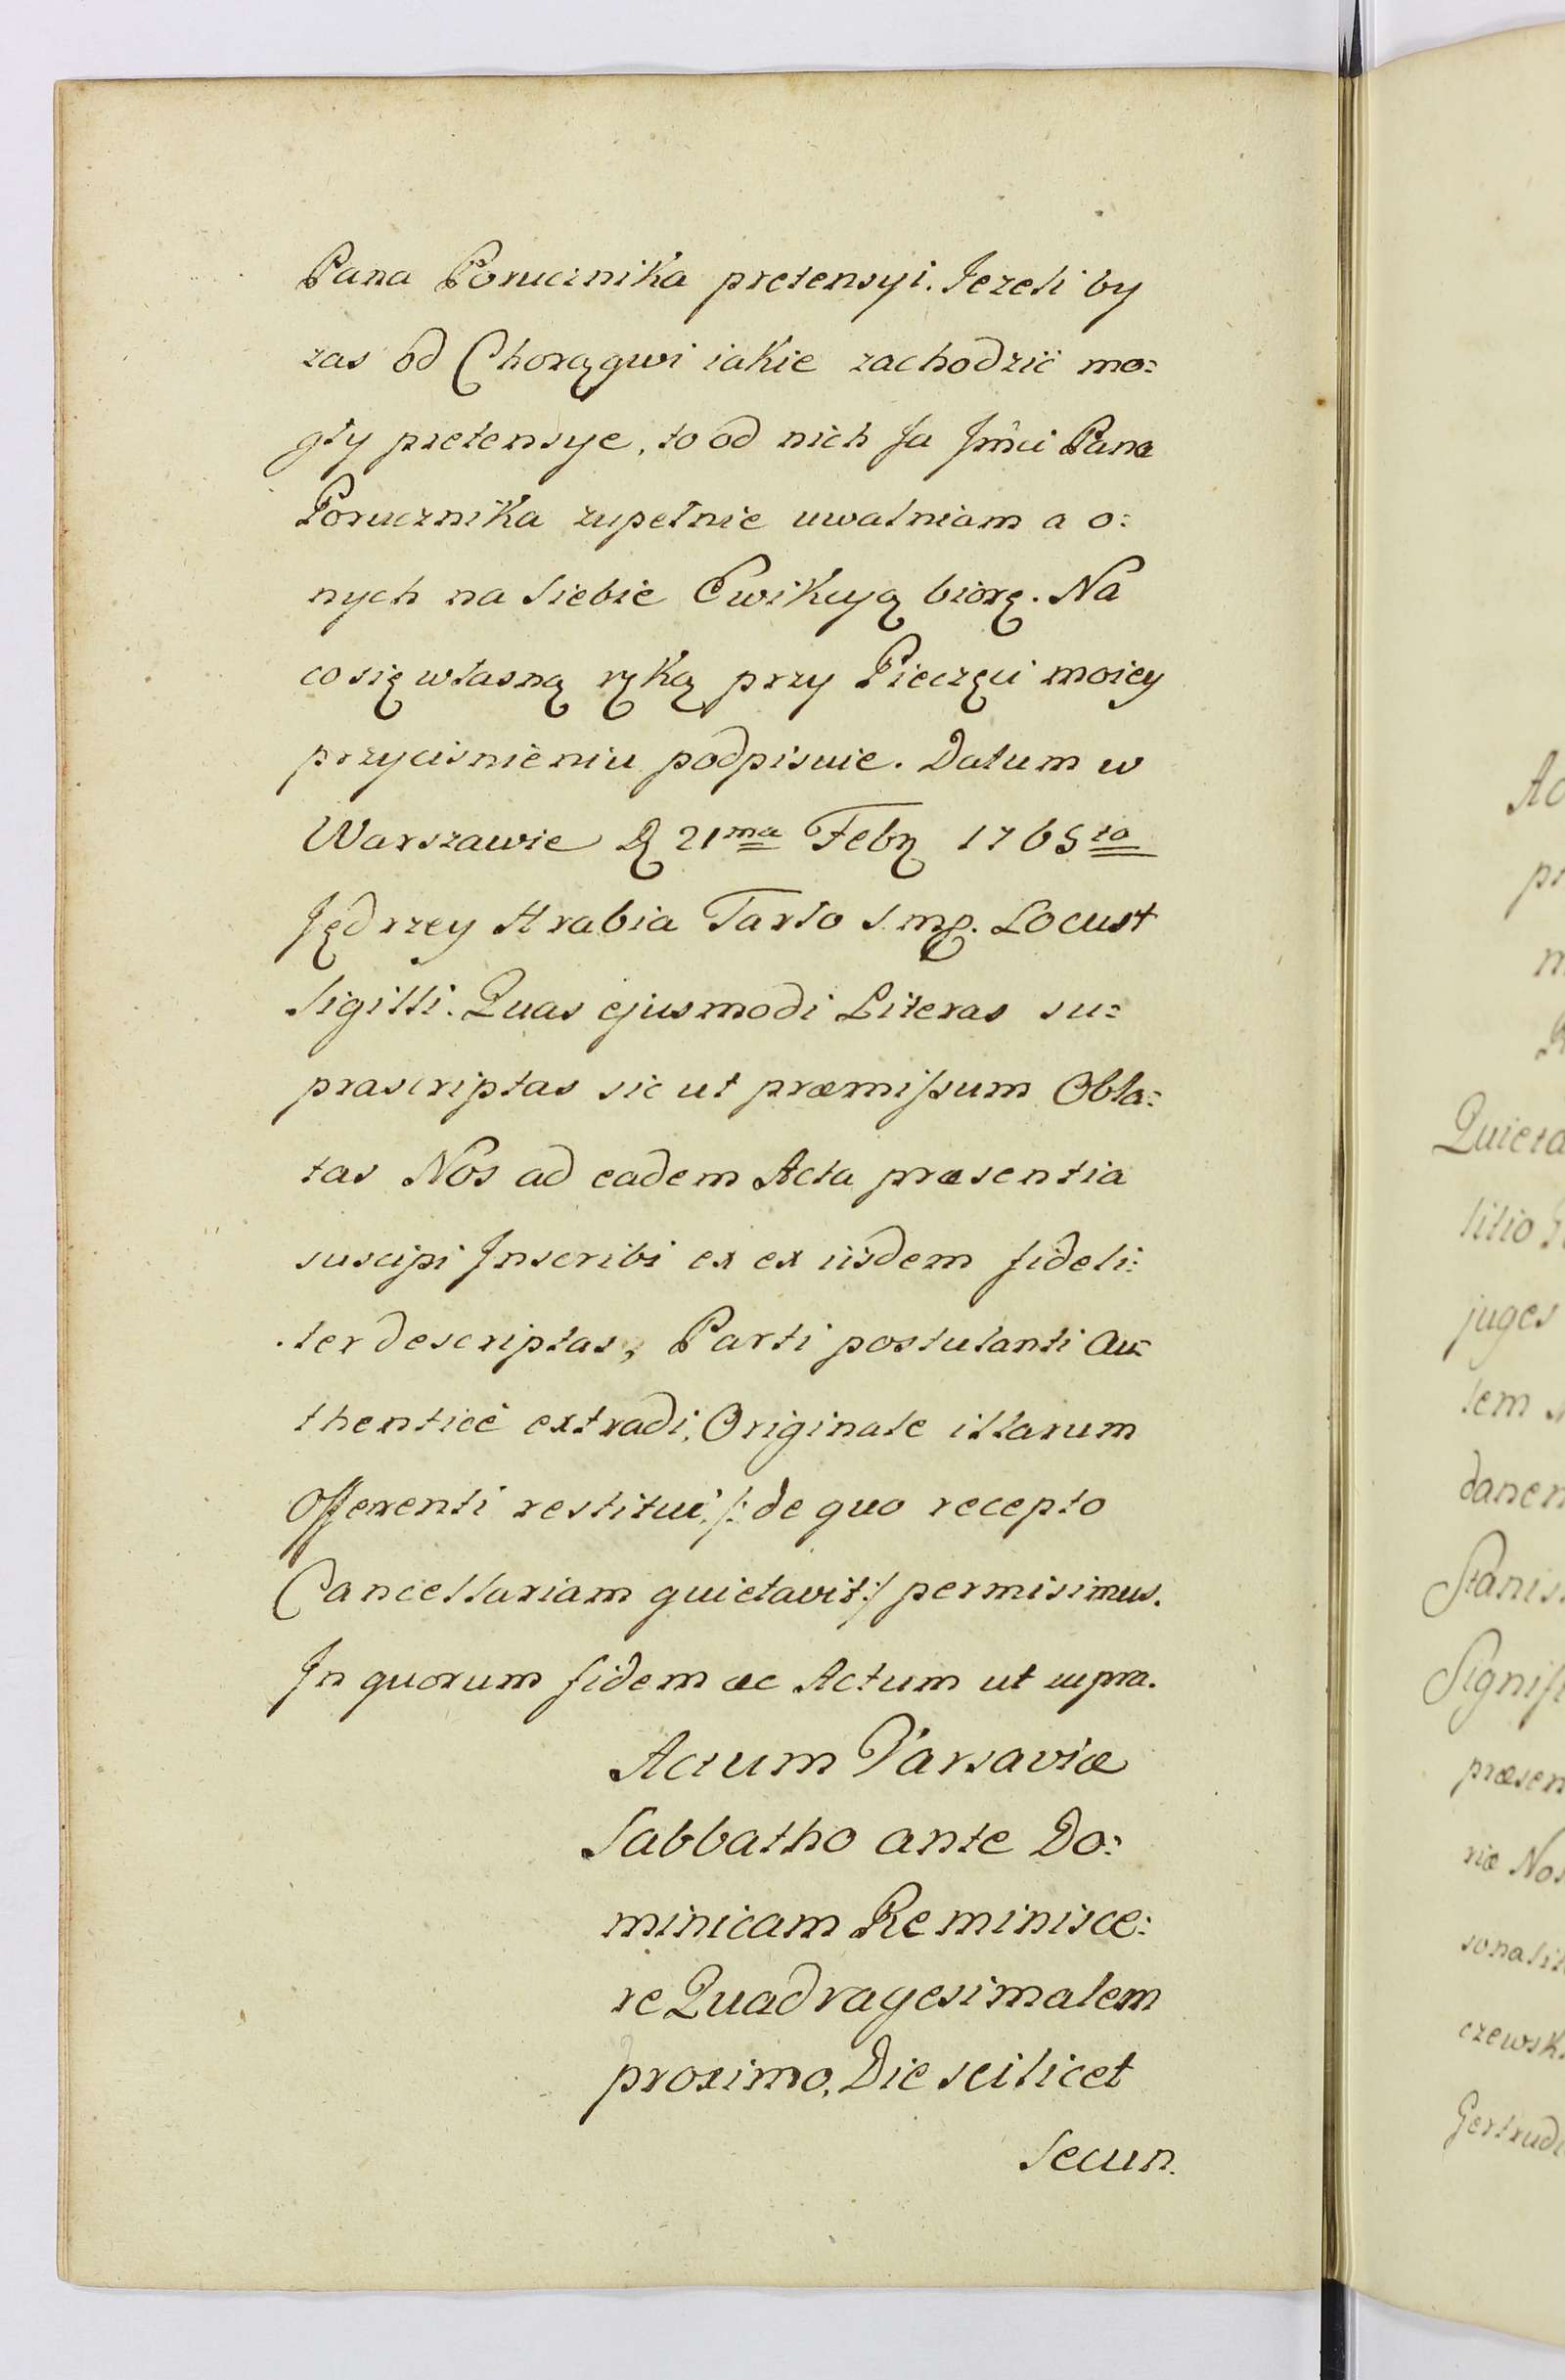 Pana Porucznika pretensyi. Jezeli by
zas od Chorągwi iakie zachodzić mo:
gły pretensye, to od nich Ja Jmći Pana
Porucznika zupełnie uwalniam a o:
nych na siebie Ewikcyą biorę. Na
co się własną ręką przy Pieczęci moiey
przycisnieniu podpisuie. Datum w
Warszawie D 21ma Febr 1765to
Jędrzey Hrabia Tarło S. mp. Locust
Sigilli. Quas ejusmodi Literas su:
prascriptas sic ut præmissum Obla:
tas Nos ad eadem Acta præsentia
suscipi Inscribi ex ex iisdem fideli:
ter descriptas, Parti postulanti Au:
thenticè extradi, Originale illarum
Offerenti restitui, /: de quo recepto
Cancellariam quietavit :/ permisimus.
In quorum fidem ac Actum ut supra.
Actum Varsaviæ
Sabbatho ante Do:
minicam Reminisce:
re Quadragesimalem
proximo, Die scilicet
Secun.
Ac
pr
Quieta
litio
juges
lem
danem
Stanis
Signif
præsen
riæ Nos
sonalit
czewsk
Gertrudi